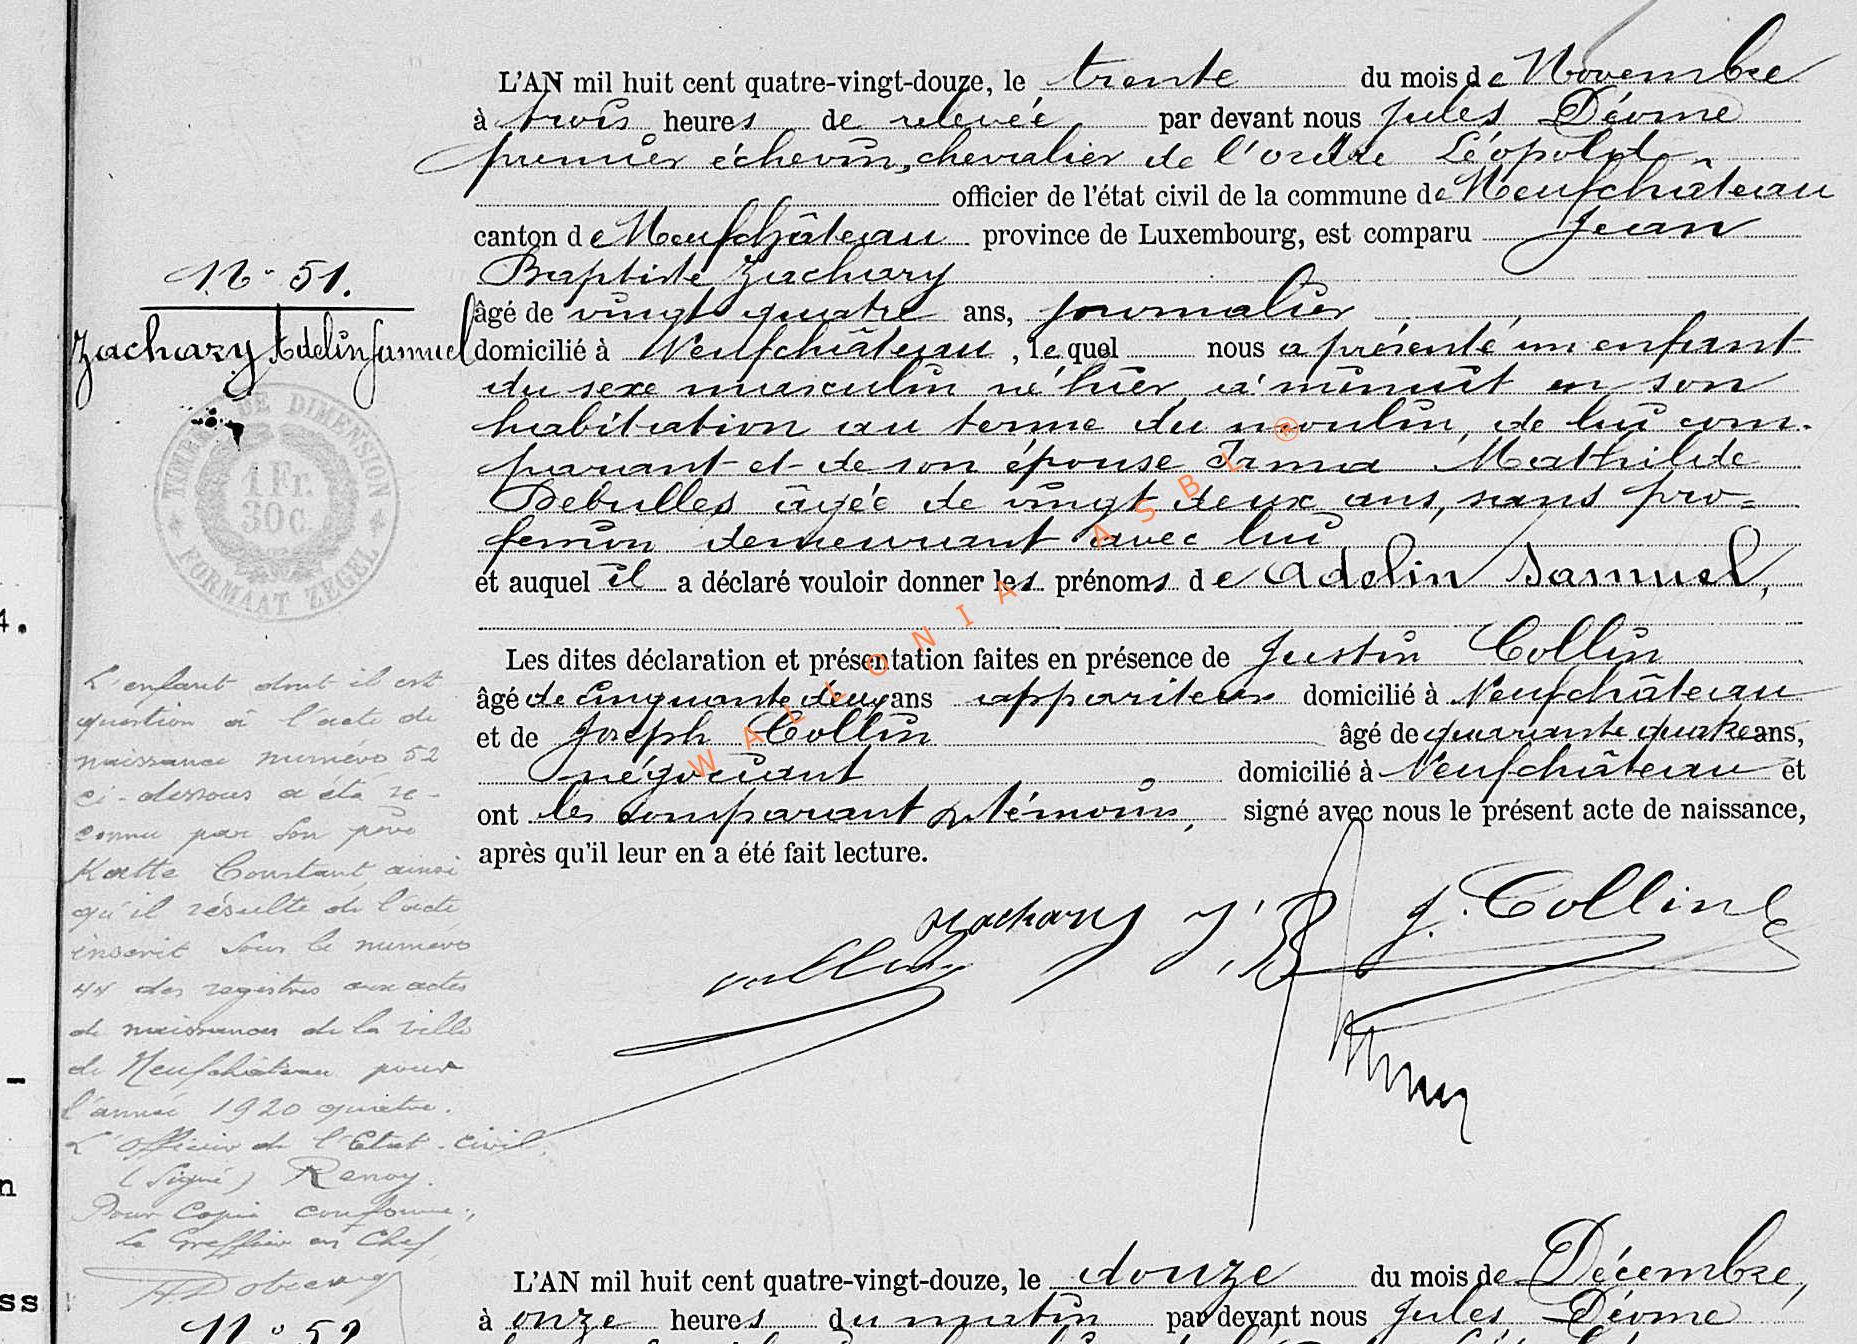 L'AN mil huit cent quatre-vingt-douze, le trente du mois de Novembre
à trois heures de relevée par devant nous Jules Déome
premier échevin, chevalier de l'ordre Léopold
officier de l'état civil de la commune de Neufchâteau
canton de Neufchâteau province de Luxembourg, est comparu Jean
Baptiste Zachary
âgé de vingt quatre ans, journalier
domicilié à Neufchâteau, lequel nous a présenté un enfant
du sexe masculin né hier à minuit en son
habitation au terme du moulin, de lui com-
parant et de son épouse Irma Mathilde
Debulles âgée de vingt deux ans, sans pro=
fession demeurant avec lui
et auquel il a déclaré vouloir donner les prénoms de Adelin Samuel,
Les dites déclaration et présentation faites en présence de Justin Collin
âgé de cinquante deux ans appariteur domicilié à Neufchâteau
et de Joseph Collin âgé de quarante quatre ans,
négociant domicilié à Neufchâteau et
ont les comparant et témoins, signé avec nous le présent acte de naissance,
après qu'il leur en a été fait lecture.
Zachary J. B J. Collin
Collin
N° 51.
Zachary Adelin Samuel
TIMBRE DE DIMENSION
1 Fr.
30 c.
FORMAAT ZEGEL
L'enfant dont il est
question à l'acte de
naissance numéro 52
ci-dessous a été re-
connu par son père
Katte Constant, ainsi
qu'il résulte de l'acte
inscrit sous le numéro
44 des registres aux actes
de naissances de la ville
de Neufchâteau pour
l'année 1920 quatre.
L'officier de l'Etat-civil,
(signé) Renoy.
Pour copie conforme:,
Le Greffier en Chef,
WALLONIA ASBL ®
L'AN mil huit cent quatre-vingt-douze, le douze du mois de Décembre,
à onze heures du matin par devant nous Jules Déome
N° 52
4.
-
n
ss